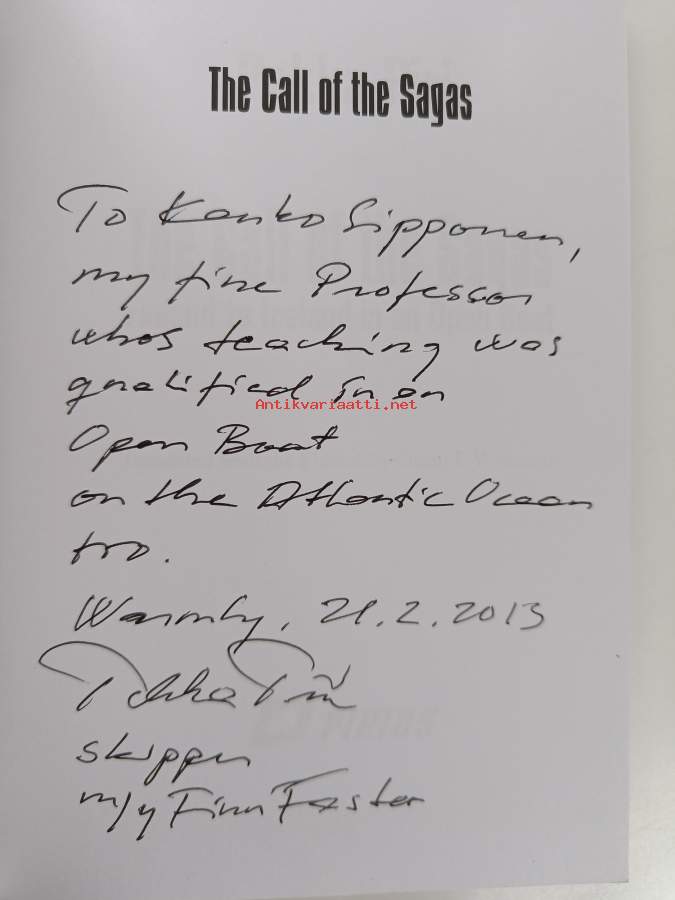 The Call of the Sagas
To Kauko Sipponen,
my fine Professor
whos teaching was
qualified in an
Antikvariaatti.net
Open Boat
on the Atlantic Ocean
too.
Warmly, 21.2.2013
Pekka Piri
skipper
m/y FinnFaster